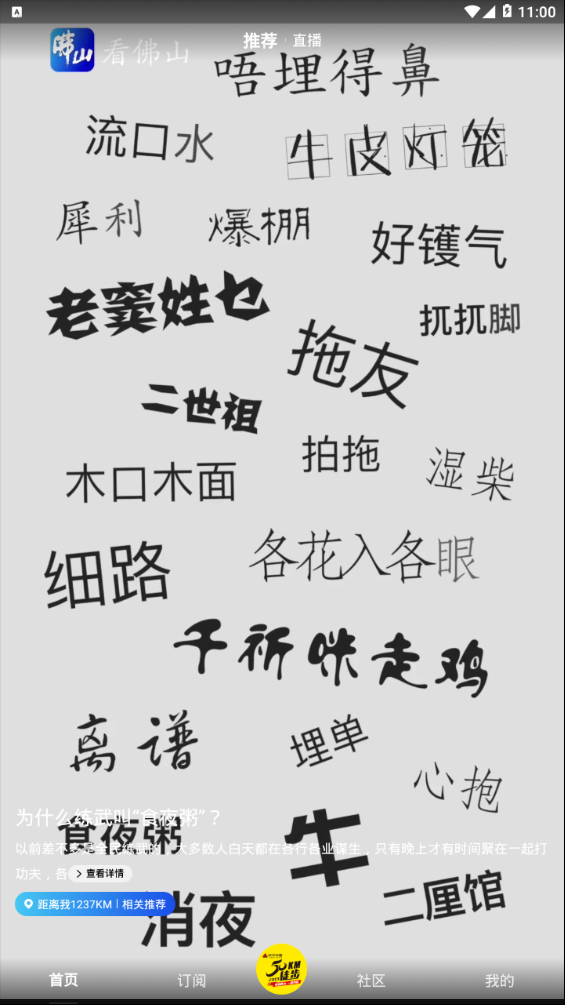 11:00
推荐 直播
佛山 看佛山
唔埋得鼻
流口水
牛皮灯笼
犀利
爆棚
好镬气
老窦姓乜
扤扤脚
拖友
二世祖
拍拖
木口木面
湿柴
细路
各花入各眼
千祈咪走鸡
离谱
埋单
心抱
为什么练武叫“食夜粥”？
食夜粥
牛
以前差不多是全民练武的，大多数人白天都在各行各业谋生，只有晚上才有时间聚在一起打
功夫，各
查看详情
二厘馆
距离我1237KM | 相关推荐
消夜
50KM
徒步
首页 订阅 社区 我的